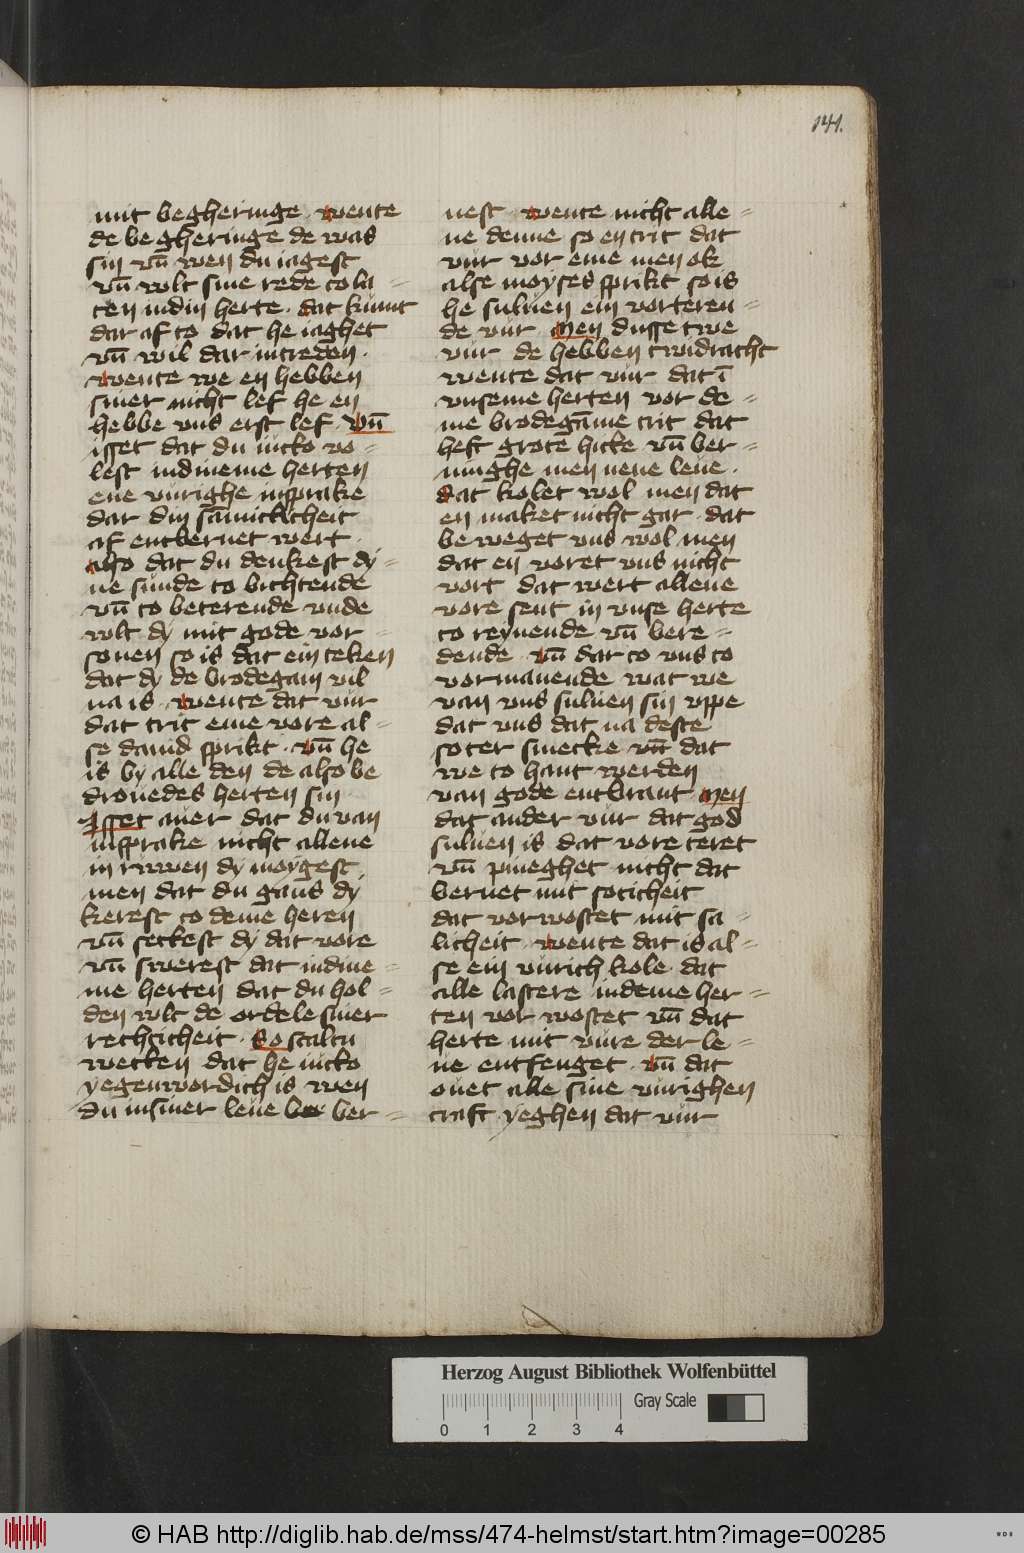 141.
mit begheringe · wente
de begheringe de was
sin vn̄ wen du iagest
vn̄ wlt sine rede to la =
ten indin herte · dat kumt
dar af to dat he iaghet
vn̄ wil dar intreden ·
wente we en hebben
siner nicht lef he en
hebbe vns erst lef · vn̄
isset dat du iucko vo =
lest indineme herten
ene vurighe insprake
dar din
af entbernet wert ·
also dat du denkest dy =
ne sunde to bichtende
vn̄ to beterende vnde
wlt dy mit gode vor =
sonen so is dat ein teken
dat dy de brodegam vil
na is · wente dat vur
dat trit eme vore al =
se dauid sprikt · vn̄ he
is by alle den de also be
drouedes herten sin
Isset auer dat du van
insprake nicht allene
in ruwen dy moygest
men dat du gans dy
kerest to deme heren
vn̄ settest dy dat vore
vn̄ swerest dat indine =
me herten dat du hol =
den wlt de ordele siner
rechticheit · So scaltu
wetten dat he iucko
yegenwordich is wen
du insiner leue ber =
nest · wente nicht alle =
ne denne so en trit dat
vur vor eme men ok
alse moyses sprikt so is
he suluen ein vorteren =
de vur · Men dusse twe
vur de hebben twidracht
wente dat vur dat ī
vnseme herten vor de =
me brodegāme trit dat
heft grote hicke vn̄ ber =
ninghe men nene leue ·
dat kolet wol men dat
en maket nicht gar · dat
beweget vns wol men
dat en voret vns nicht
vort dat wert allene
vore sent in vnse herte
to reynende vn̄ bere =
dende · vn̄ dar to vns to
vormanende wat we
van vns suluen sin vppe
dat vns dat na deste
soter smecke vn̄ dat
we to hant werden
van gode entbrant · Men
dat ander vur dat god
suluen is dat vore teret
vn̄ pineghet nicht dat
bernet mit soticheit
dat vorwostet mit sa =
licheit · wente dat is al =
se ein vurich kole · dat
alle lastere indeme her =
ten vor wostet vn̄ dat
herte mit vure der le =
ue entfenget · vn̄ dat
ouet alle sine vurighen
craft · yeghen dat vur
Herzog August Bibliothek Wolfenbüttel
Gray Scale
0 1 2 3 4
© HAB http://diglib.hab.de/mss/474-helmst/start.htm?image=00285
WDB